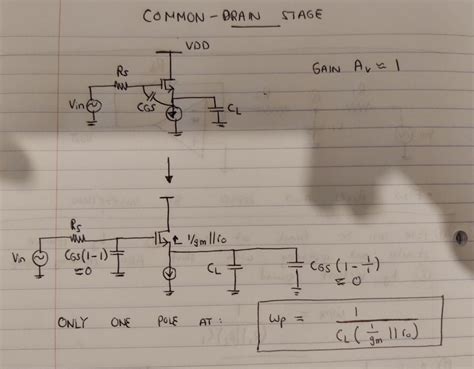 COMMON-DRAIN STAGE
VDD
RS
GAIN Av ≈ 1
Vin
CGS
CL
RS
1/gm || ro
Vin
CGS(1-1)
≈ 0
CL
CGS(1 - 1/1)
≈ 0
ONLY ONE POLE AT: ωp = 1 / CL (1/gm || ro)